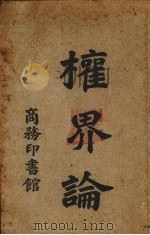 權界論
商務印書館